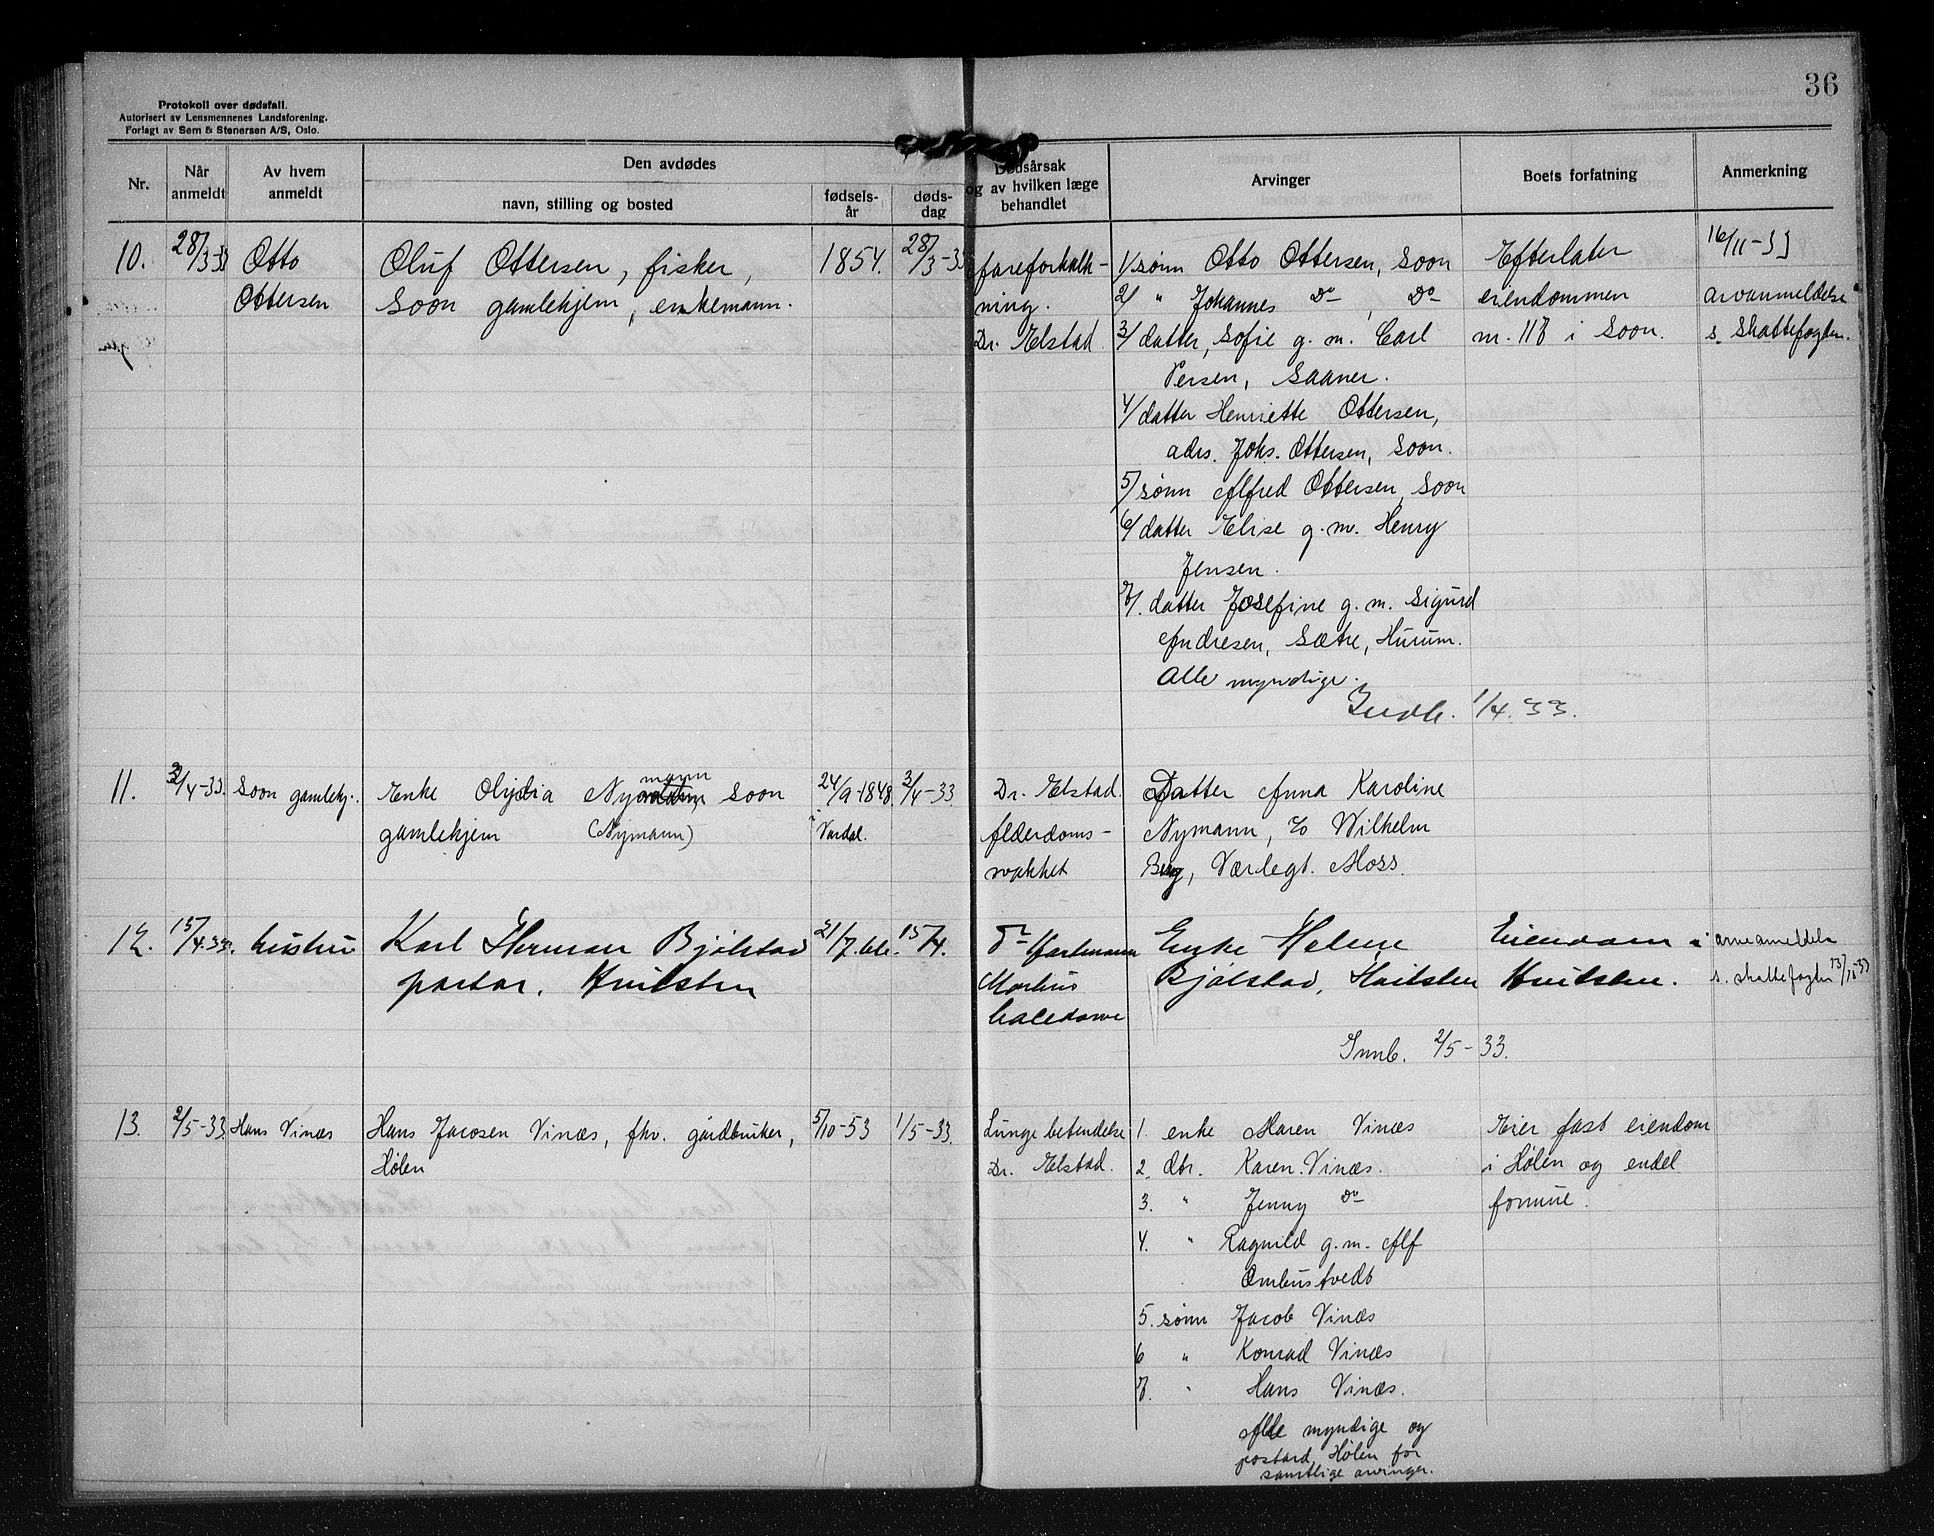 36
Protokoll over dødsfall.
Autorisert av Lensmennenes Landsforening.
Forlagt av Sem & Stenersen A/S, Oslo.
Nr.
Når
anmeldt
Av hvem
anmeldt
Den avdødes
navn, stilling og bosted
fødsels-
år
døds-
dag
Dødsårsak
og av hvilken læge
behandlet
Arvinger
Boets forfatning
Anmerkning
10.
28/3-33
Otto
Ottersen
Oluf Ottersen, fisker,
Soon gamlehjem, enkemann.
1854.
28/3-33
Åreforkalk-
ning.
Dr. Elstad.
1/ sønn Otto Ottersen, Soon
2/ " Johannes Do , Do
3/ datter, Sofie g. m. Carl
Persen, Saaner.
4/ datter Henriette Ottersen,
adrs. Johs. Ottersen, Soon.
5/ sønn Alfred Ottersen, Soon
6/ datter Elise g. m. Henry
Jensen.
7/. datter Josefine g. m. Sigurd
Andresen, Sætre, Hurum.
Alle myndige.
Indb. 1/4. 33.
Efterlater
eiendommen
m. 117 i Soon.
16/11-33
arvanmeldelse
s. Skattefogden.
11.
3/4-33.
Soon gamlehj.
Enke Olydia Nymann Soon
gamlehjem (Nymann)
24/9-1848.
i Vardal.
3/4-33.
Dr. Elstad.
Alderdoms-
svakhet
Datter Anna Karoline
Nymann, c/o Wilhelm
Berg, Værlegt. Moss.
12.
15/4.33.
hustru
Karl Herman Bjølstad
pastor. Hvitsten
21/7.
15/4.
Dr Hartmann
Morbus
Enke Helene
Bjølstad, Hvitsten
Innb. 2/5-33.
Eiendom i
Hvitsten.
arveanmeldelse
s. skattefogden 13/11-33
13.
2/5-33.
Hans Vinæs
Hans Jacosen Vinæs, fhv. gårdbruker,
Hølen
5/10-53
1/5-33.
Lunge betendelse
Dr. Elstad.
1. enke Maren Vinæs
2. dtr. Karen Vinæs.
3. " Jenny Do
4. " Ragnild g. m. Alf
Ombustvedt
5. sønn Jacob Vinæs
6 " Konrad Vinæs
7. " Hans Vinæs.
Alle myndige og
postard, Hølen for
samtlige arvinger.
Eier fast eiendom
i Hølen og endel
formue.